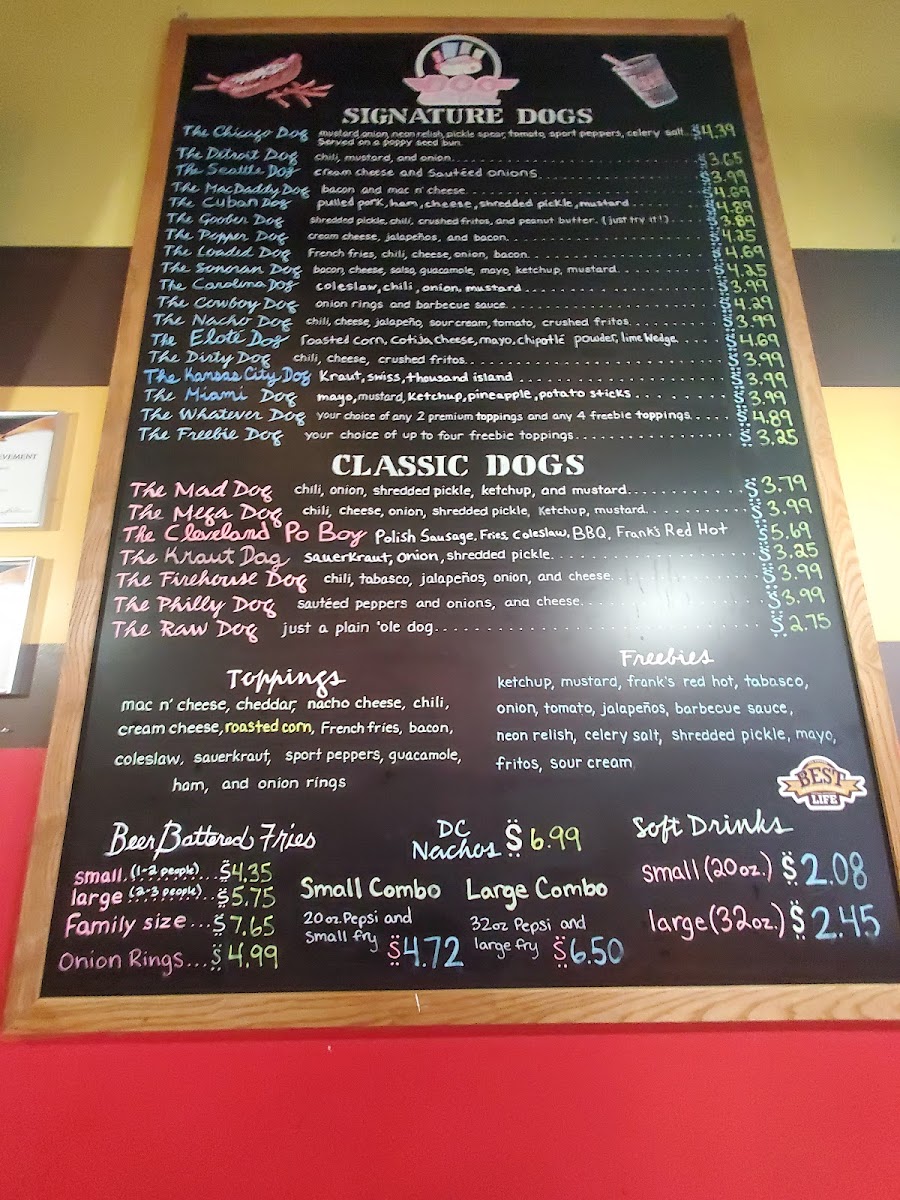 DOG
SIGNATURE DOGS
The Chicago Dog mustard, onion, neon relish, pickle spear, tomato, sport peppers, celery salt.. $4.39
Served on a poppy seed bun.
The Detroit Dog chili, mustard, and onion........ $3.65
The Seattle Dog cream cheese and Sautéed onions........ $3.99
The MacDaddy Dog bacon and mac n' cheese........ $4.69
The Cuban Dog pulled pork, ham, cheese, shredded pickle, mustard........ $4.89
The Goober Dog shredded pickle, chili, crushed fritos, and peanut butter. (just try it!).... $3.89
The Pepper Dog cream cheese, jalapeños, and bacon........ $4.25
The Loaded Dog French fries, chili, cheese, onion, bacon........ $4.69
The Sonoran Dog bacon, cheese, salsa, guacamole, mayo, ketchup, mustard........ $4.25
The Carolina Dog coleslaw, chili, onion, mustard........ $3.99
The Cowboy Dog onion rings and barbecue sauce........ $4.29
The Nacho Dog chili, cheese, jalapeño, sour cream, tomato, crushed fritos........ $3.99
The Elote Dog roasted corn, cotija cheese, mayo, chipotlé powder, lime wedge.... $4.69
The Dirty Dog chili, cheese, crushed fritos........ $3.99
The Kansas City Dog Kraut, swiss, thousand island........ $3.99
The Miami Dog mayo, mustard, Ketchup, pineapple, potato sticks........ $3.99
The Whatever Dog your choice of any 2 premium toppings and any 4 freebie toppings..... $4.89
The Freebie Dog your choice of up to four freebie toppings........ $3.25
CLASSIC DOGS
The Mad Dog chili, onion, shredded pickle, ketchup, and mustard........ $3.79
The Mega Dog chili, cheese, onion, shredded pickle, Ketchup, mustard........ $3.99
The Cleveland Po Boy Polish Sausage, Fries, Coleslaw, BBQ, Frank's Red Hot $5.69
The Kraut Dog sauerkraut, onion, shredded pickle........ $3.25
The Firehouse Dog chili, tabasco, jalapeños, onion, and cheese........ $3.99
The Philly Dog sautéed peppers and onions, and cheese........ $3.99
The Raw Dog just a plain 'ole dog........ $2.75
Toppings
mac n' cheese, cheddar, nacho cheese, chili,
cream cheese, roasted corn, French fries, bacon,
coleslaw, sauerkraut, sport peppers, guacamole,
ham, and onion rings
Freebies
ketchup, mustard, frank's red hot, tabasco,
onion, tomato, jalapeños, barbecue sauce,
neon relish, celery salt, shredded pickle, mayo,
fritos, sour cream
BEST
LIFE
Beer Battered Fries
small.(1-2 people)...$4.35
large (2-3 people)...$5.75
Family size...$7.65
Onion Rings...$4.99
DC
Nachos $6.99
Small Combo
20 oz. Pepsi and
Small fry $4.72
Large Combo
32oz Pepsi and
large fry $6.50
Soft Drinks
small (20 oz.) $2.08
large (32oz.) $2.45
EVEMENT